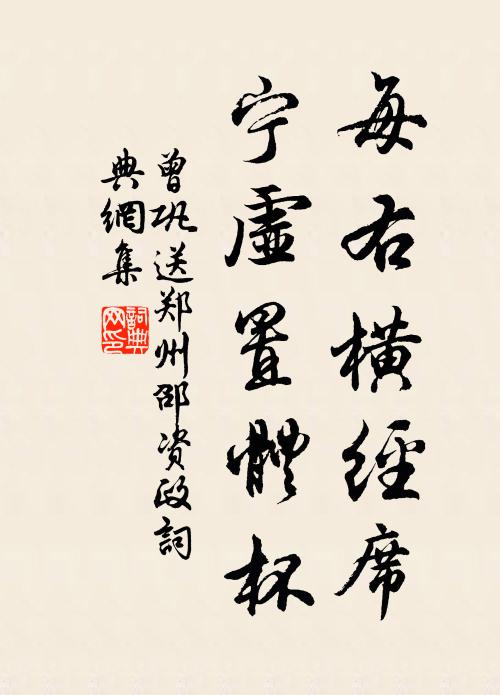 每右横經席
宁虛置體杯
曾巩送郑州邵资政詞
典網集
詞典
网印